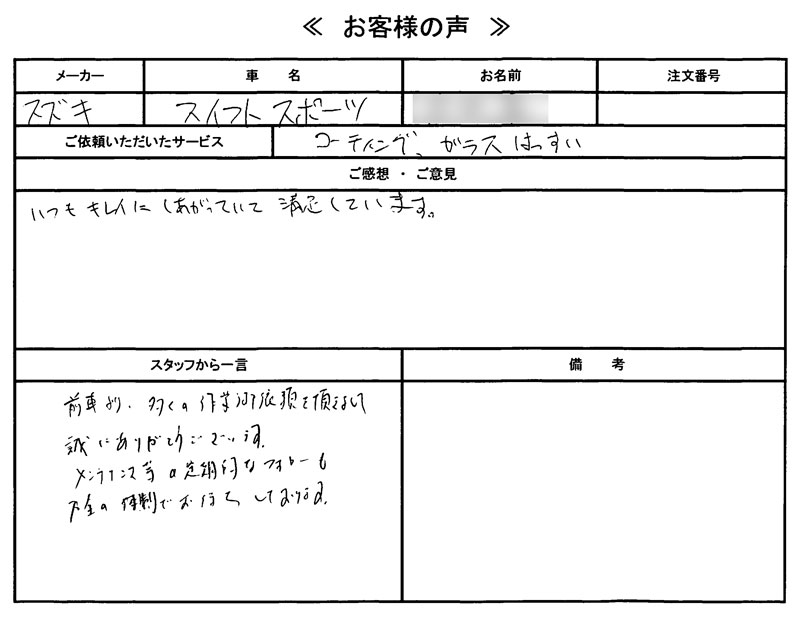 ≪ お客様の声 ≫
メーカー 車 名 お名前 注文番号
スズキ スイフト スポーツ
ご依頼いただいたサービス コーティング、ガラス はっすい
ご感想 ・ ご意見
いつも キレイに しあがっていて 満足しています。
スタッフから一言 備 考
前車より、多くの作業御依頼を頂きまして
誠にありがとうございます。
メンテナンス等の定期的なフォローも
万全の体制でお待ちしております。